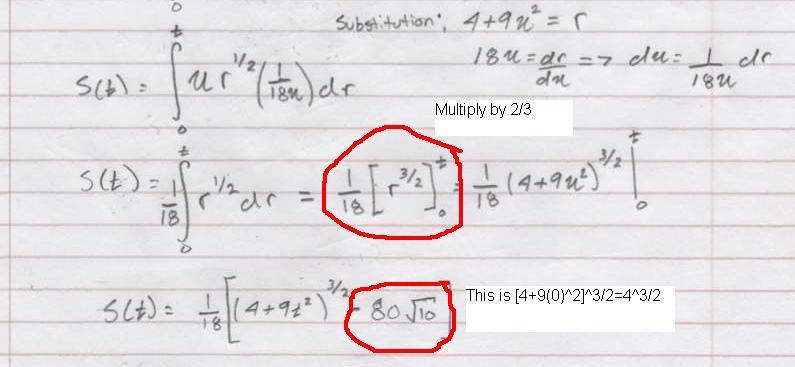 0
Substitution: 4+9u² = r
S(t) = ∫₀ᵗ u r^1/2 (1/18u) dr
18u = dr/du => du = 1/18u dr
Multiply by 2/3
S(t) = 1/18 ∫₀ᵗ r^1/2 dr = 1/18 [r^3/2]₀ᵗ = 1/18 (4+9u²)^3/2 |₀ᵗ
S(t) = 1/18 [(4+9t²)^3/2 - 80√10]
This is [4+9(0)^2]^3/2=4^3/2